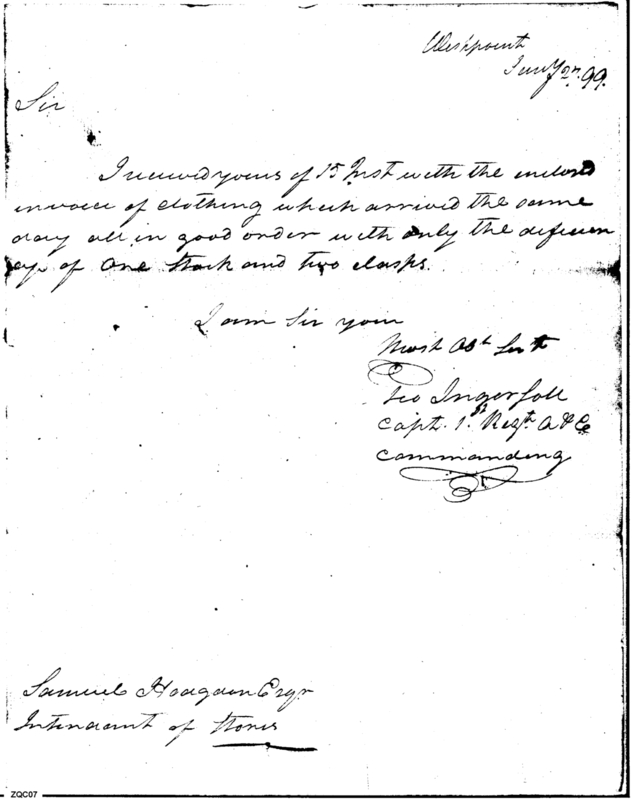 Westpoint
Jany 27. 99.
Sir
I receivd yours of 15 Inst with the inclosd
invoice of clothing which arrived the same
day all in good order with only the deficien
cy of One Stock and two clasps.
I am Sir your
Most Obt Servt
Geo Ingersoll
Capt. 1st Regt. A & E
Commanding
Samuel Hodgdon Esqr
Intendant of Stores
ZQC07